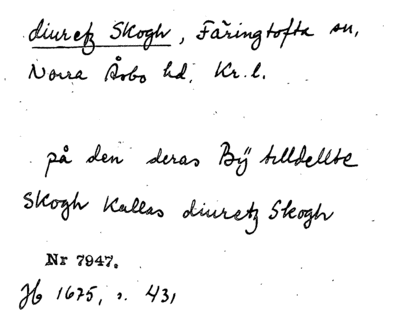 diuretz Skogh, Färingtofta sn,
Norra Åsbo hd, Kr. l.
på den deras Bÿ tilldellte
Skogh Kallas diuretz Skogh
Nr 7947.
Jb 1675, s. 431